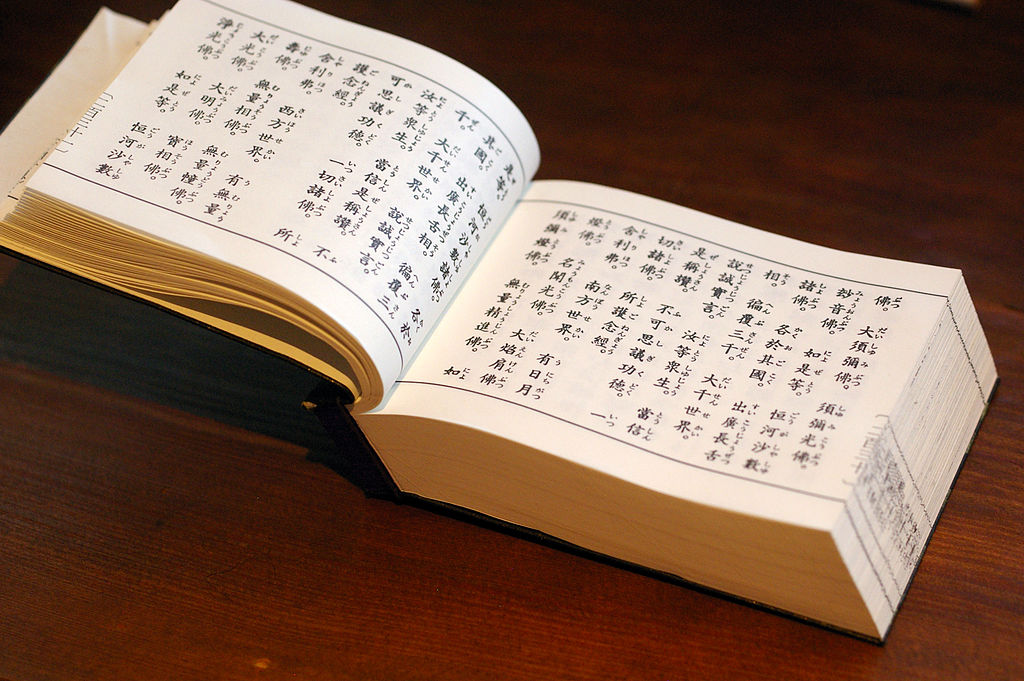 佛。大須彌佛。須彌光佛。
妙音佛。如是等。恒河沙數
諸佛。各於其國。出廣長舌
相。徧覆三千大千世界。
說誠實言。汝等衆生。當信
是稱讚。不可思議功德。一
切諸佛。所護念經。
舍利弗。南方世界。有日月
燈佛。名聞光佛。大焰肩佛
須彌燈佛。無量精進佛。如
〔二百三十〕
是等。恒河沙數諸佛。各於
其國。出廣長舌相。徧覆三
千。大千世界。說誠實言。
汝等衆生。當信是稱讚。不
可思議功德。一切諸佛。所
護念經。
舍利弗。西方世界。有無量
壽佛。無量相佛。無量幢佛。
大光佛。大明佛。寶相佛。
淨光佛。如是等。恒河沙數
〔二百三十一〕